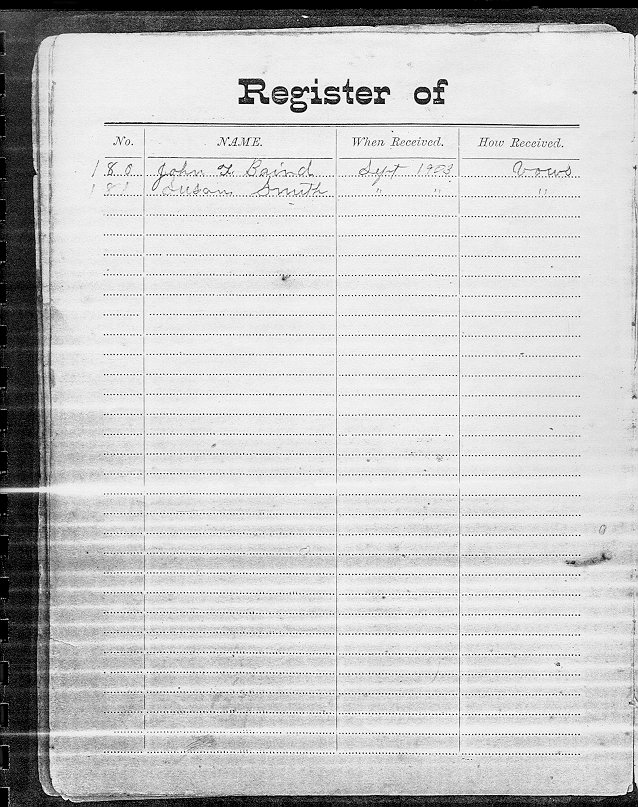 Register of
No. NAME. When Received. How Received.
180 John F. Baird Sept 1903 Vows
181 Susan Smith " " "